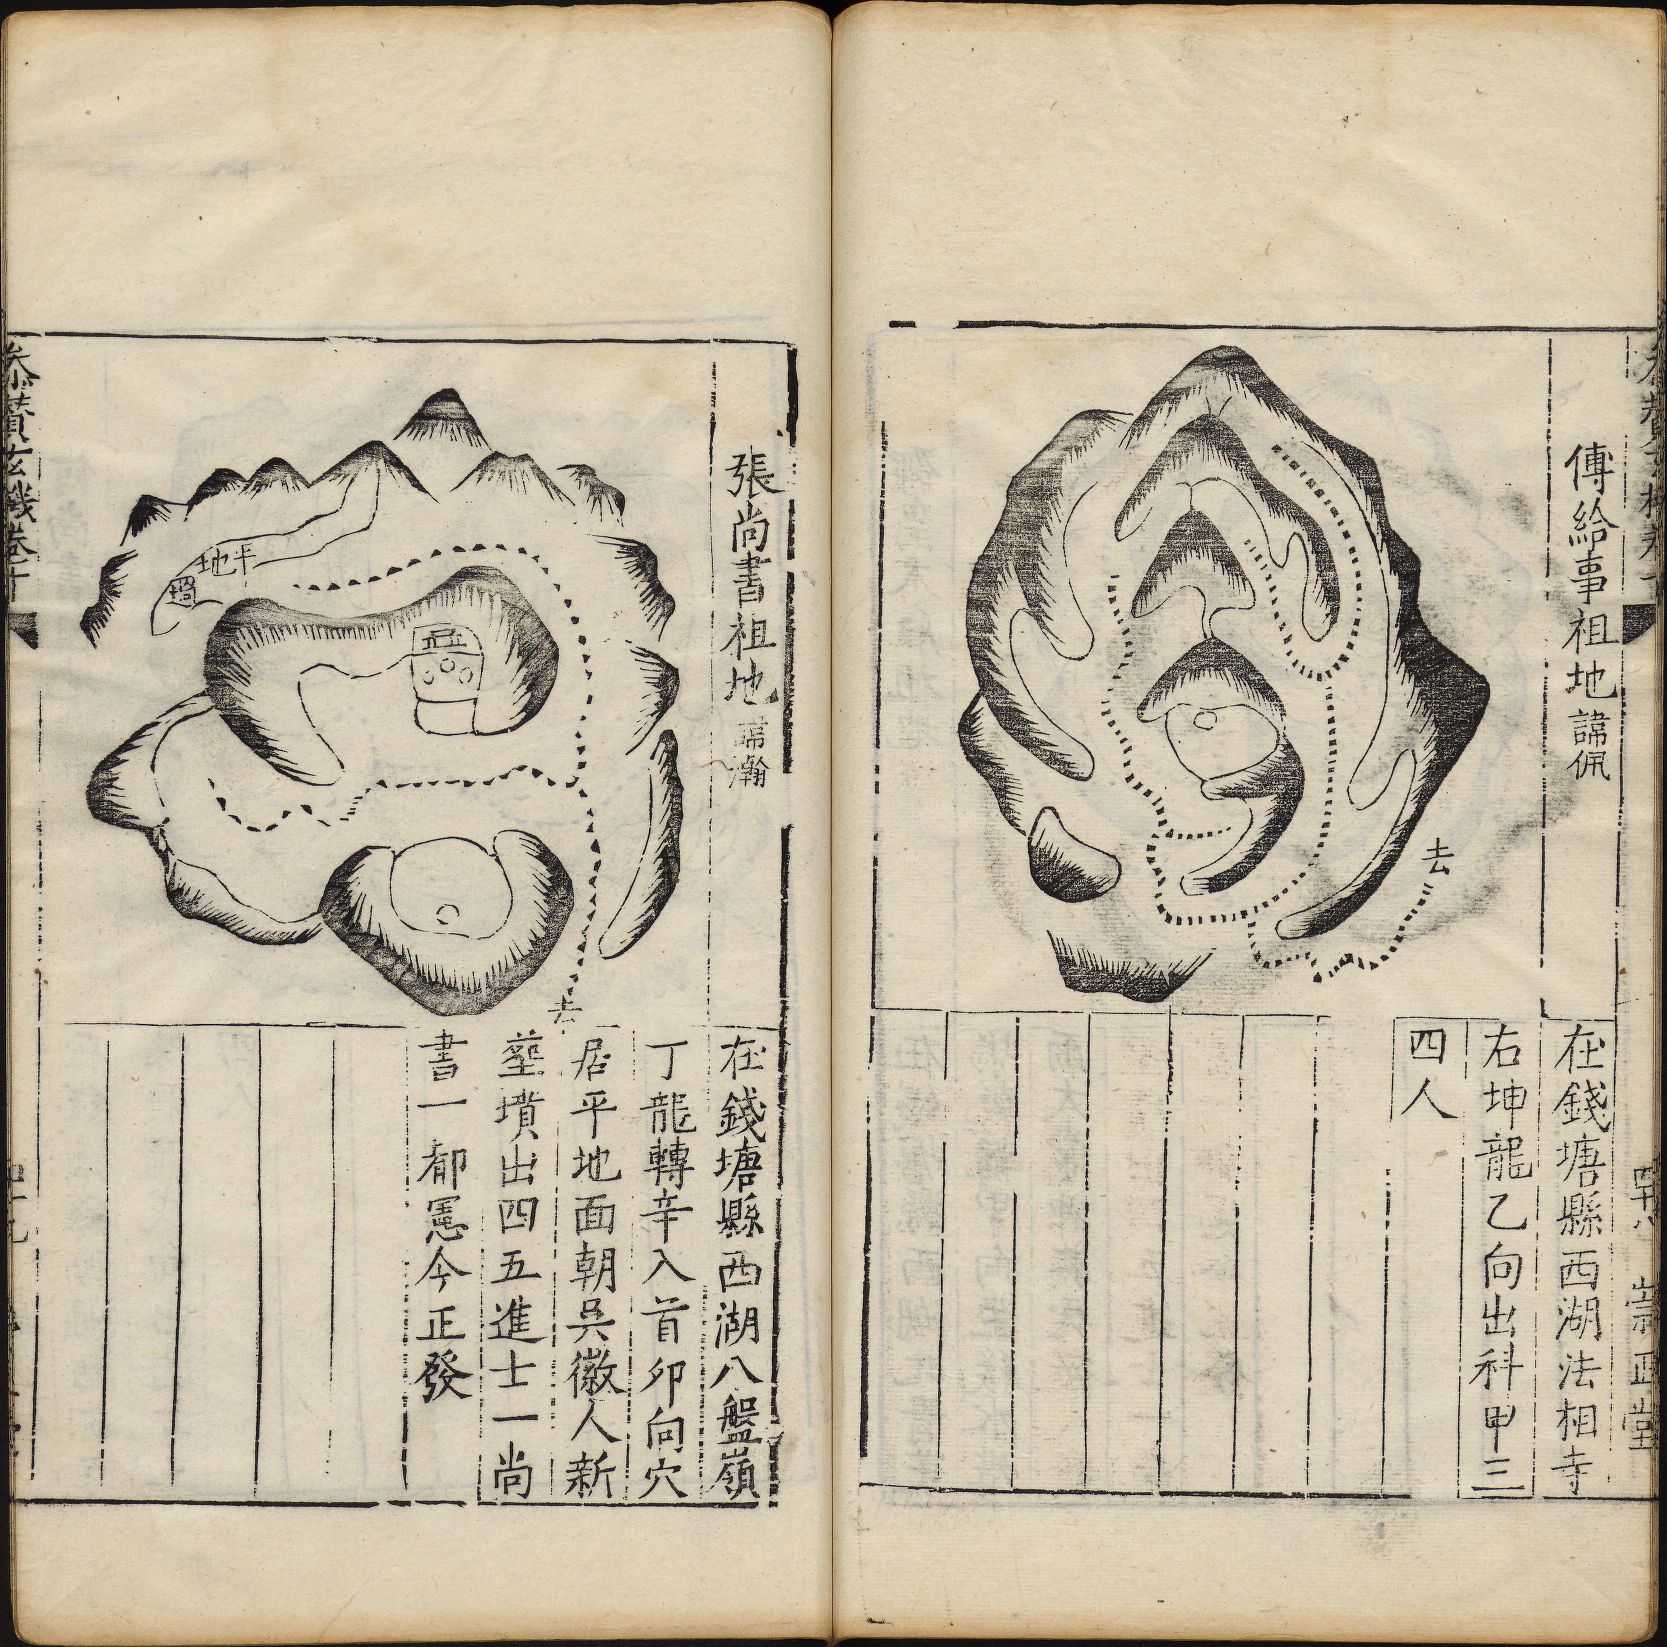 傅給事祖地 諱佩
去
在錢塘縣西湖法相寺
右坤龍乙向出科甲三
四人
崇正堂
張尚書祖地 諱瀚
平地
去
在錢塘縣西湖八盤嶺
丁龍轉辛入首卯向穴
居平地面朝吳徽人新
塟墳出四五進士一尚
書一都憲今正發
叅贊玄機卷十